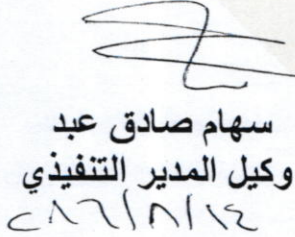 سهام صادق عبد
وكيل المدير التنفيذي